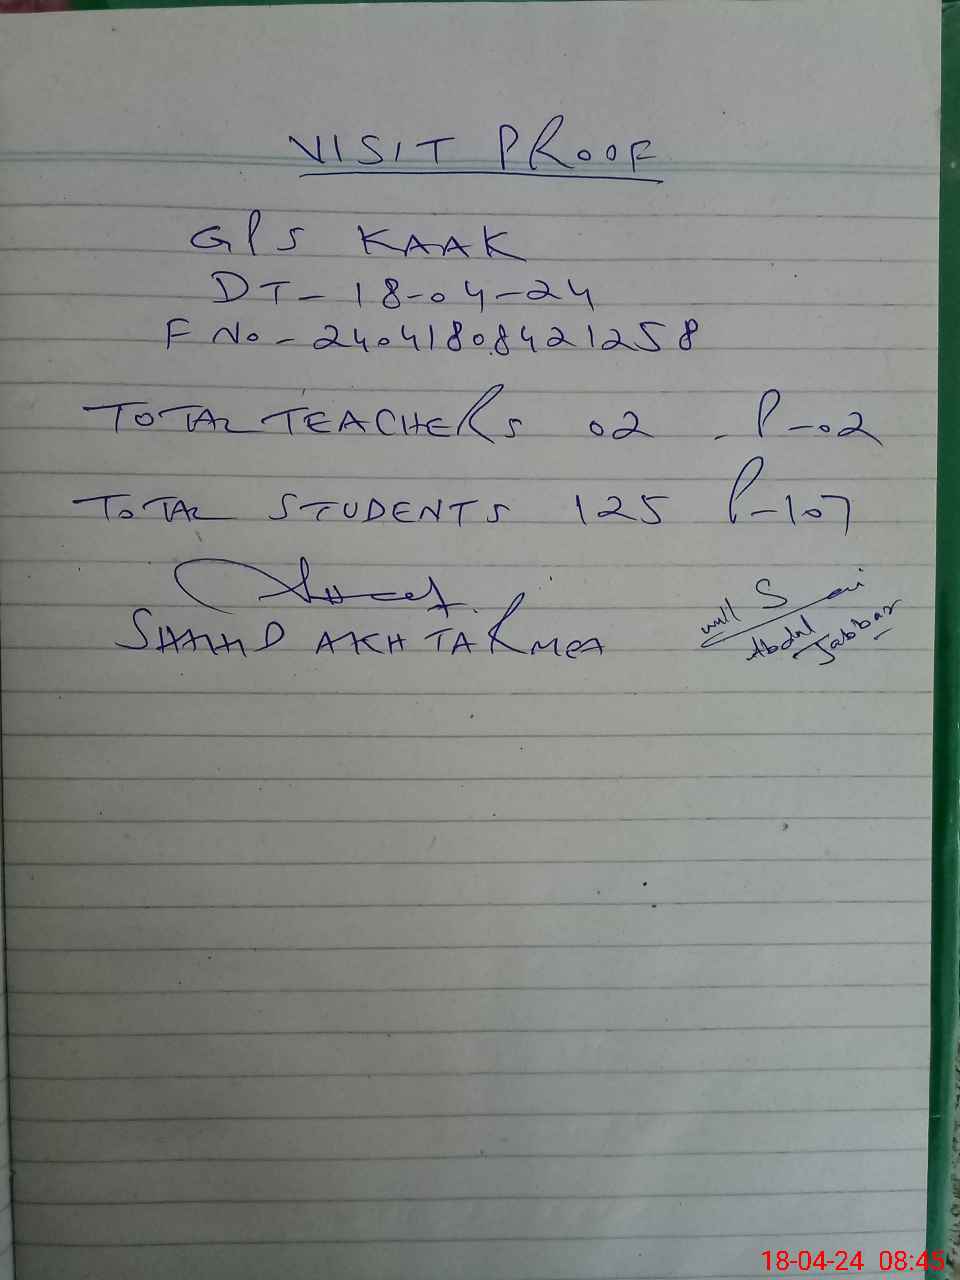 VISIT PROOF
GPS KAAK
DT- 18-04-24
F No- 24041808421258
TOTAL TEACHERS 02 P-02
TOTAL STUDENTS 125 P-107
AKHTAR MEA
Abdul
Jabbar
18-04-24 08:45